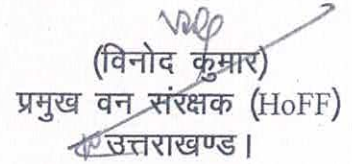 (विनोद कुमार)
प्रमुख वन संरक्षक (HoFF)
उत्तराखण्ड।